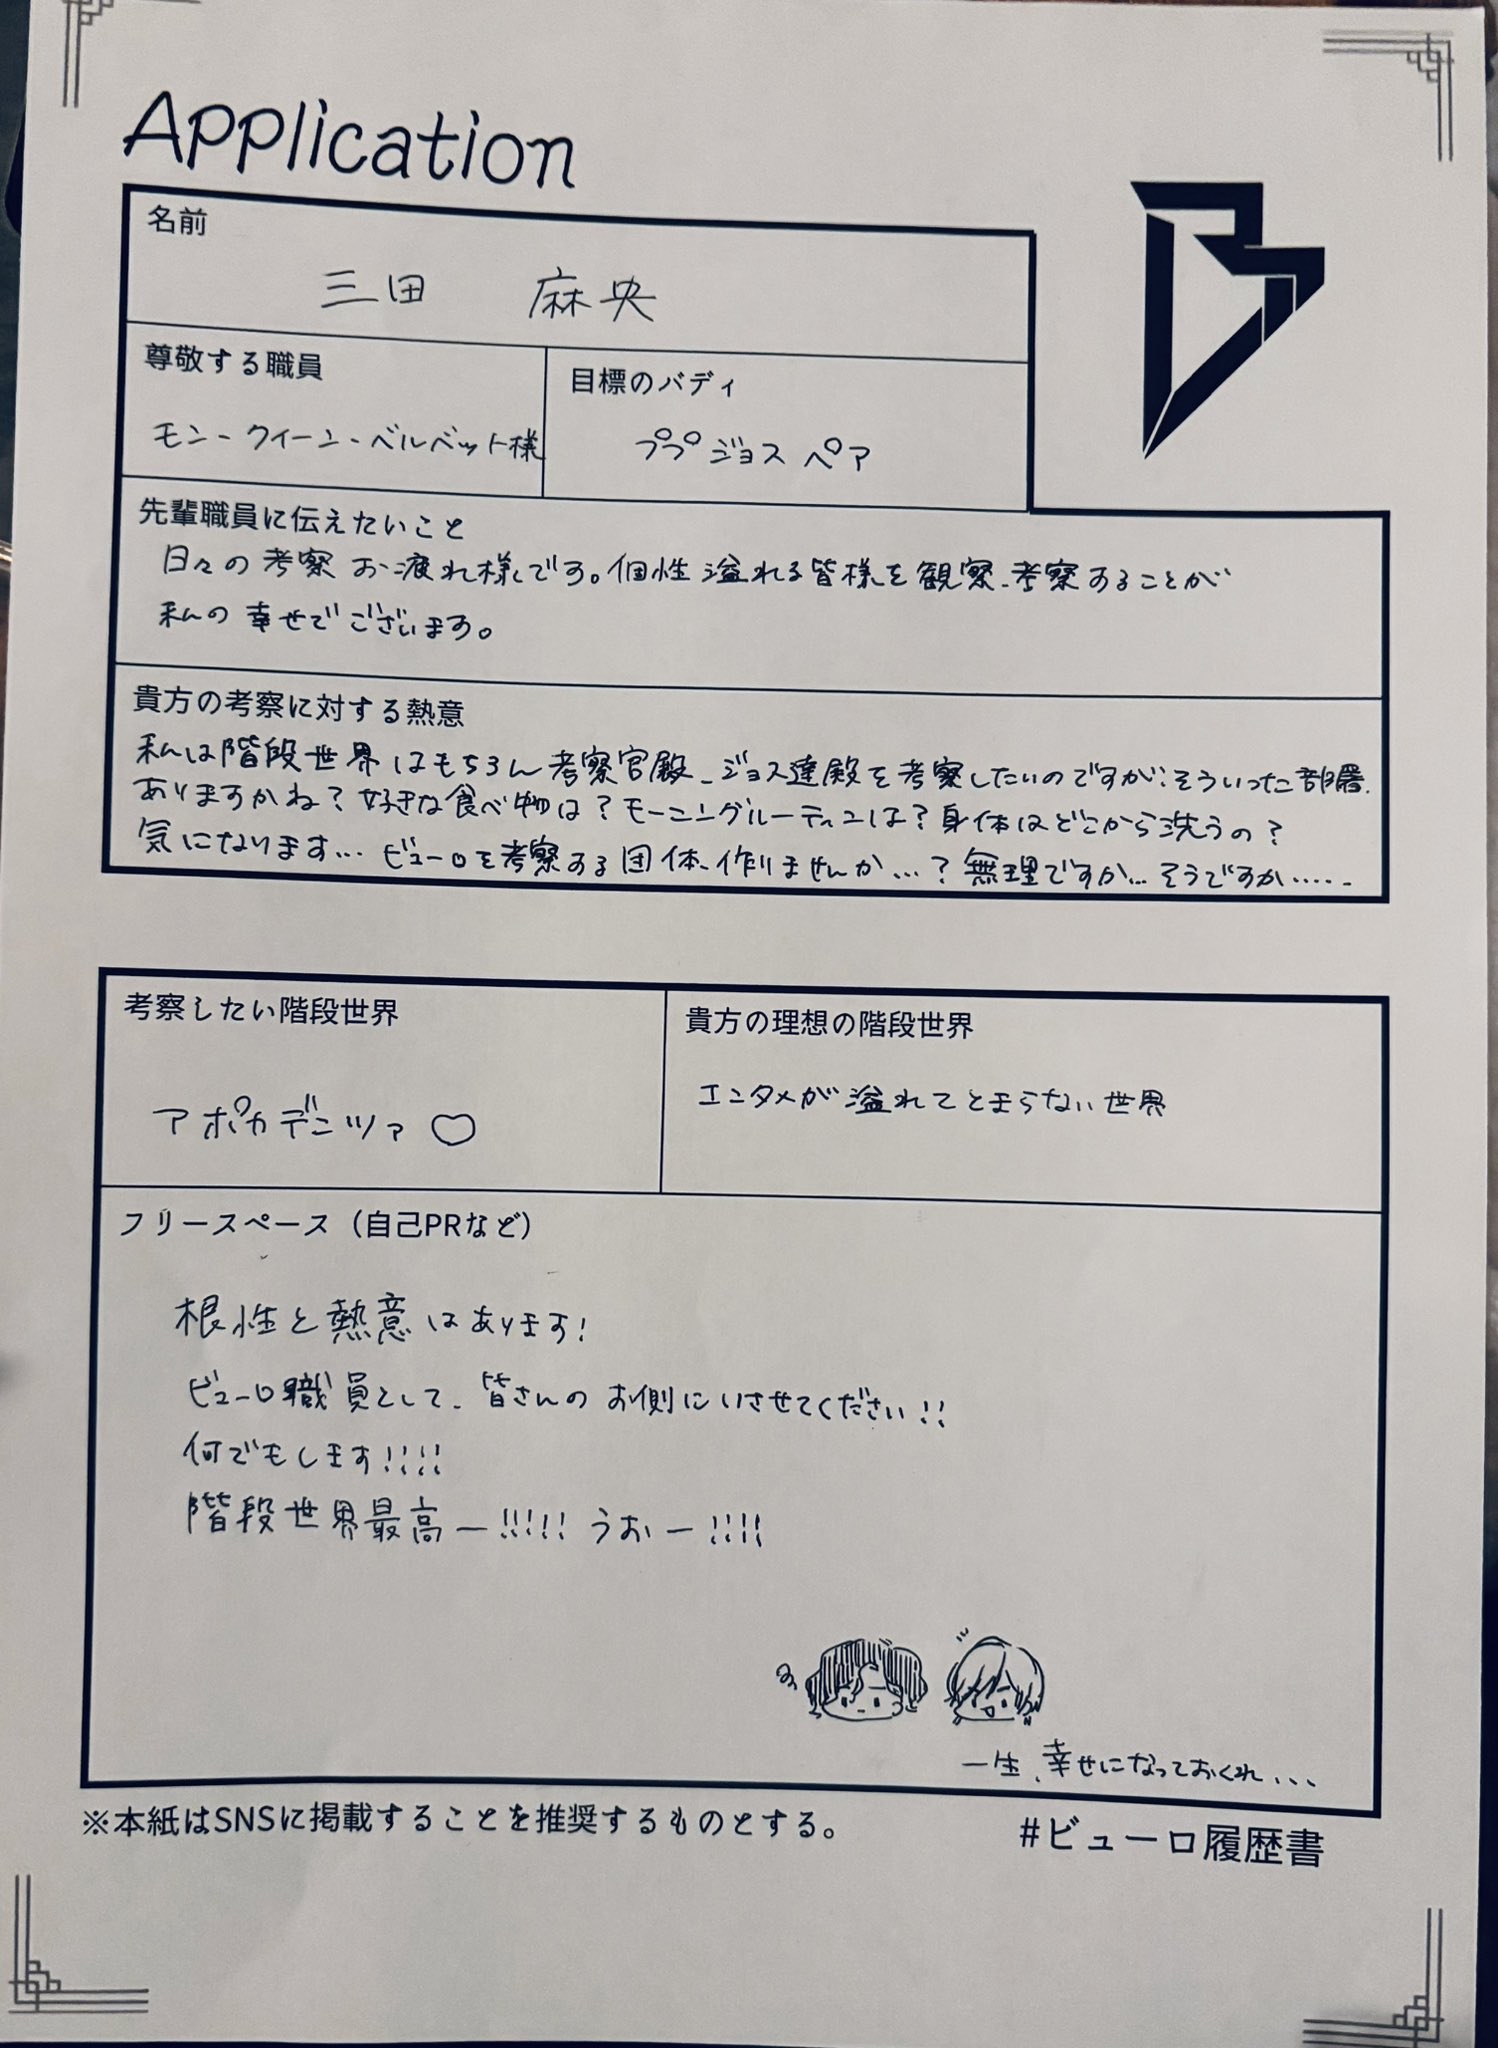 Application
名前
三田 麻央
尊敬する職員
モン・クイーン・ベルベット様
目標のバディ
ププジョスペア
先輩職員に伝えたいこと
日々の考察お疲れ様です。個性溢れる皆様を観察、考察することが
私の幸せでございます。
貴方の考察に対する熱意
私は階段世界はもちろん考察官殿、ジョス達殿を考察したいのですが、そういった部署
ありますかね?好きな食べ物は?モーニングルーティンは?身体はどこから洗うの?
気になります…ビューロを考察する団体、作りませんか…?無理ですか…そうですか……
考察したい階段世界
アポカデンツァ♡
貴方の理想の階段世界
エンタメが溢れてとまらない世界
フリースペース(自己PRなど)
根性と熱意はあります!
ビューロ職員として、皆さんのお側にいさせてください!!
何でもします!!!!
階段世界最高ー!!!!! うおー!!!!
一生、幸せになっておくれ、、、
※本紙はSNSに掲載することを推奨するものとする。
#ビューロ履歴書